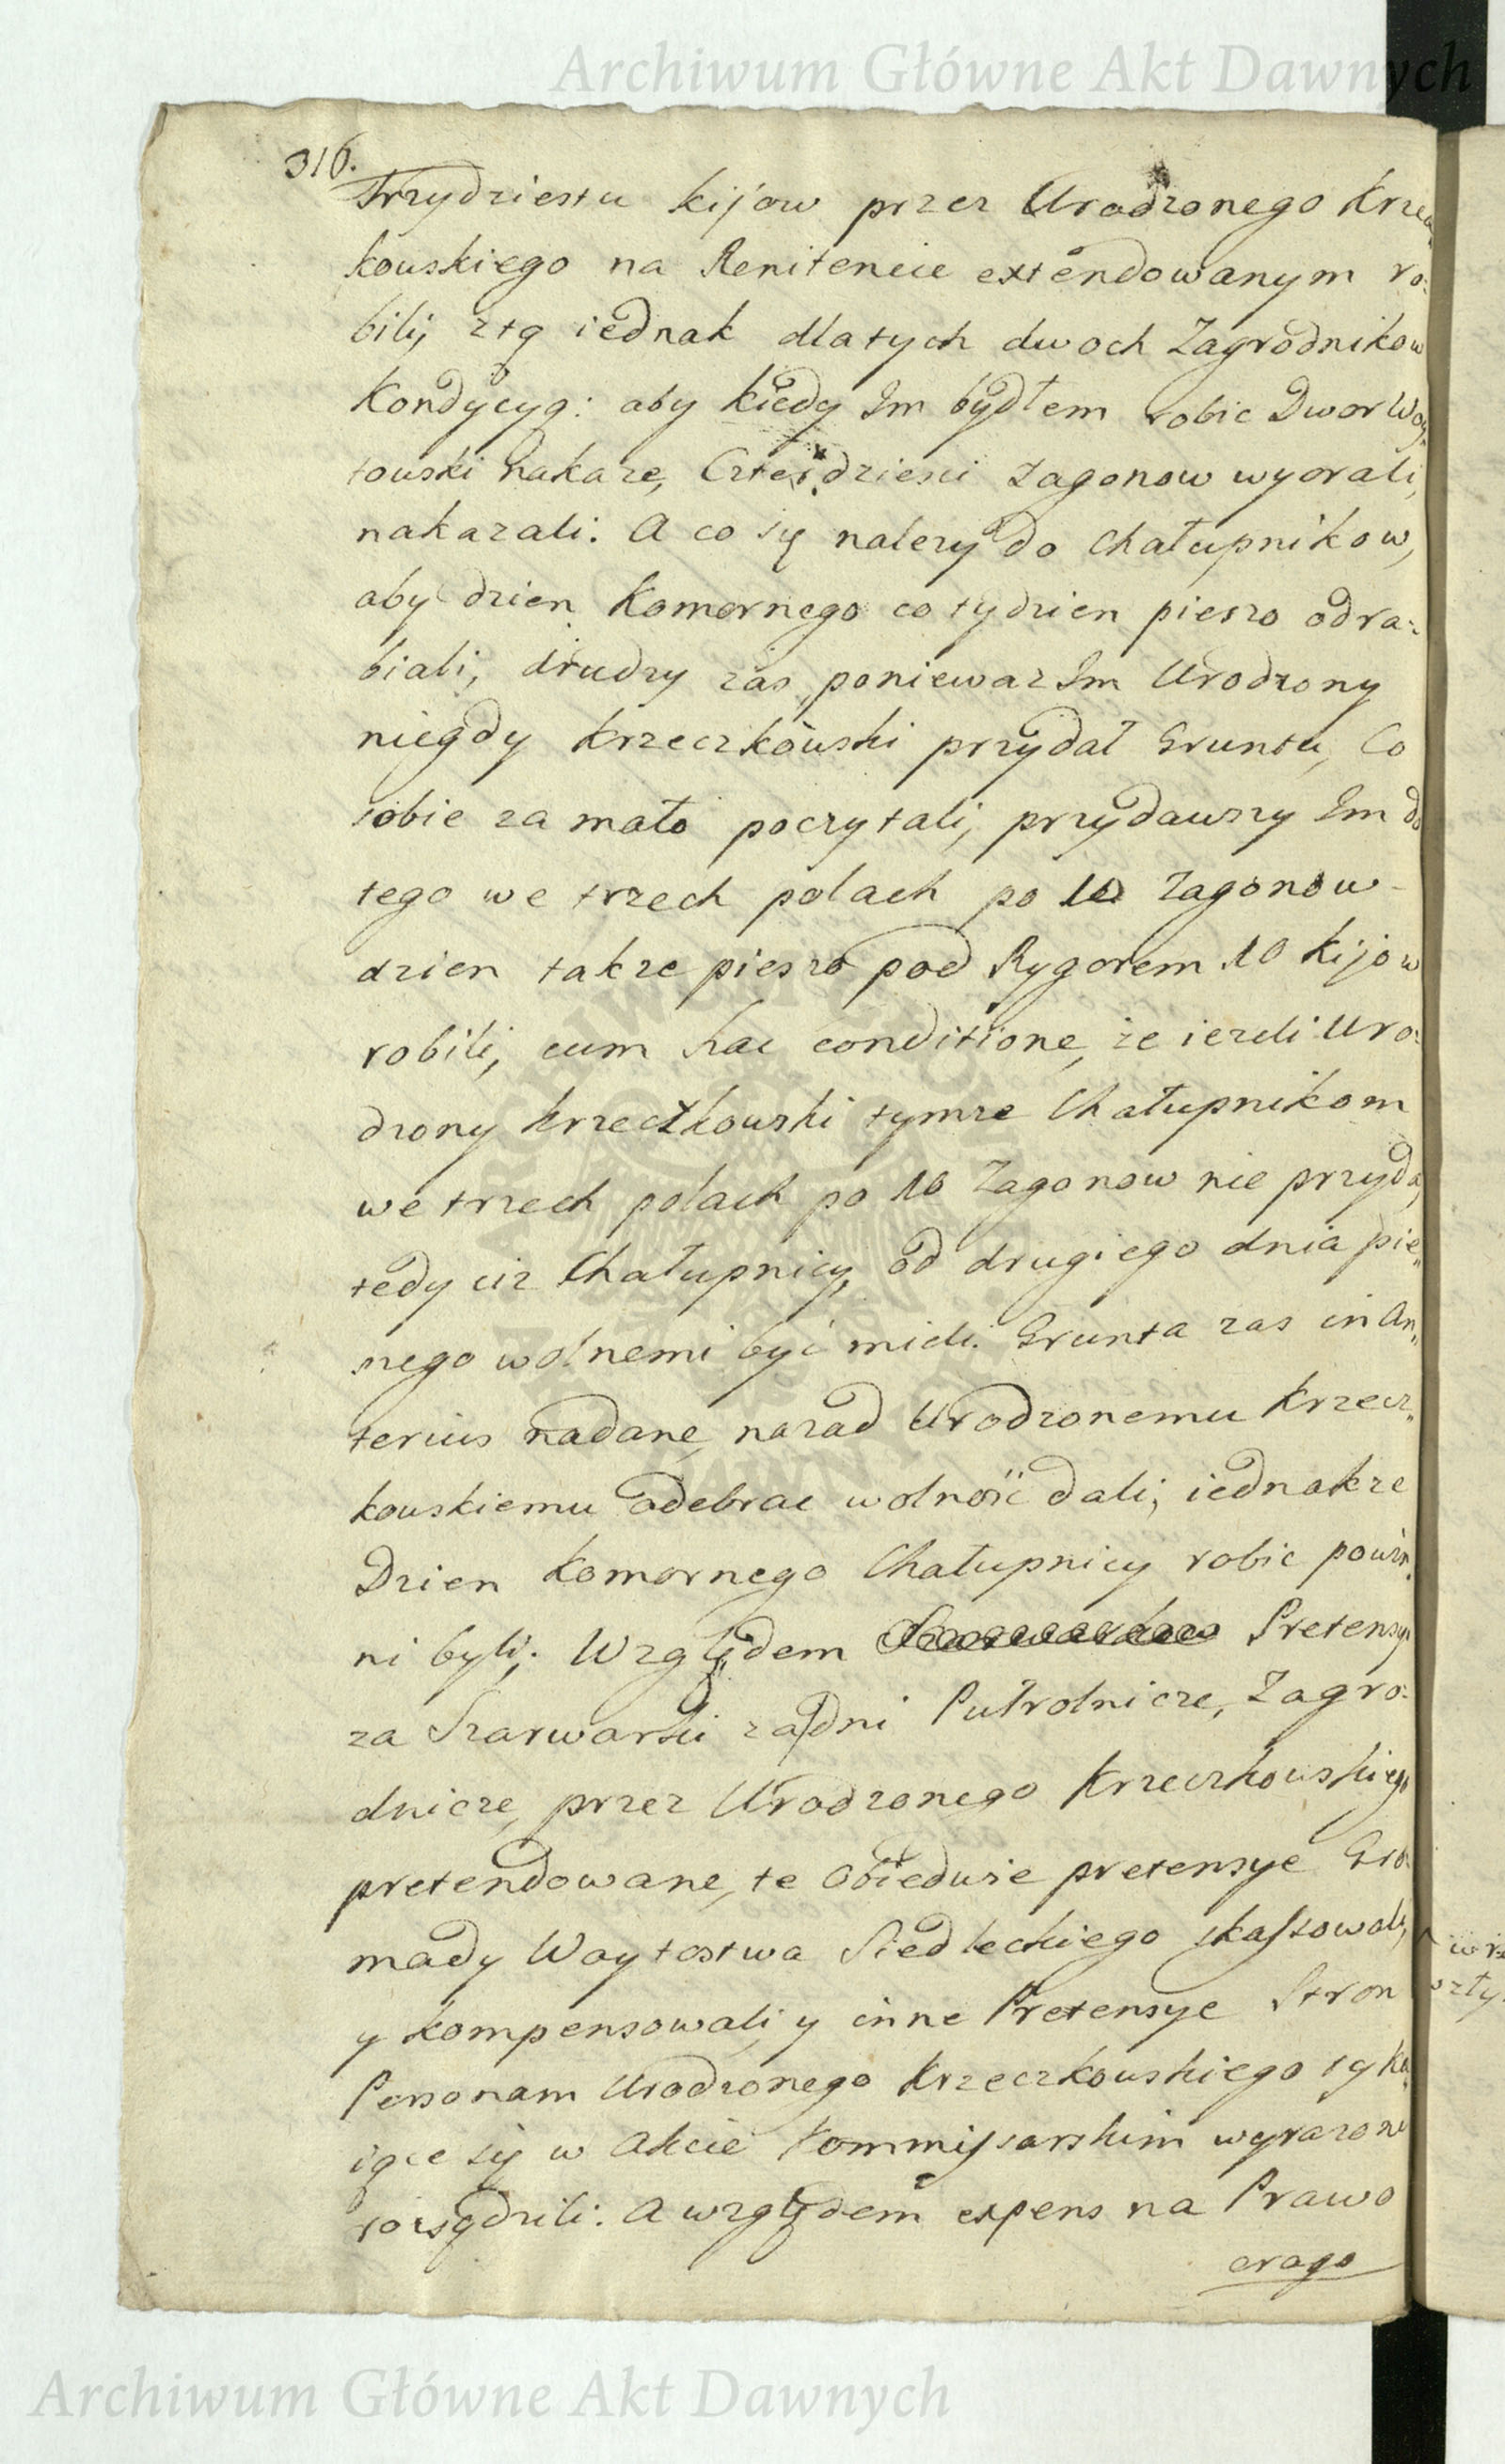 Archiwum Główne Akt Dawnych
316.
Trzydziestu kijow przez Urodzonego Krzecz
kowskiego na Renitencie extendowanym ro-
bili, z tą iednak dla tych dwoch Zagrodnikow
Kondycyą: aby kiedy Im bydłem robic Dwor Woy
towski nakaze, Czterdziesci zagonow wyorali,
nakazali. A co się nalezy do Chałupnikow,
aby dzien Komornego co tydzien pieszo odra-
biali, drudzy zas poniewaz Im Urodzony
niegdy Krzeczkowski przydał Gruntu, Co
sobie za mało poczytali, przydawszy Im do
tego we trzech polach po 10 Zagonow
dzien takze pieszo pod Rygorem 10 kijow
robili, cum hac conditione, ze iezeli Uro-
dzony Krzeczkowski tymze Chałupnikom
we trzech polach po 10 Zagonow nie przyda,
tedy ciz Chałupnicy od drugiego dnia pie„
szego wolnemi byc mieli. Grunta zas in An„
terius nadane, nazad Urodzonemu Krzecz„
kowskiemu odebrac wolność dali, iednakze
Dzien Komornego Chałupnicy robic powin„
ni byli. Względem Pretensyi
za Szarwarki zadni Pułrolnicze, Zagro-
dnicze, przez Urodzonego Krzeczkowskiego
pretendowane, te obiedwie pretensye Gro
mady Woytostwa Siedleckiego skassowali,
y kompensowali, y inne Pretensye Stron
Personam Urodzonego Krzeczkowskiego tyka
iące się w Akcie Kommissarskim wyrazone
rozsądzili. A względem expens na Prawo
Archiwum Główne Akt Dawnych